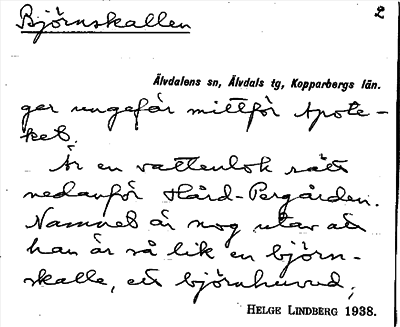 Björnskallen
2
Älvdalens sn, Älvdals tg, Kopparbergs län.
ger ungefär mittför Apote-
ket.
Är en vattenlok rätt
nedanför Hård-Pergården.
Namnet är nog utav att
han är så lik en björn-
skalle, ett björnhuvud;
HELGE LINDBERG 1938.